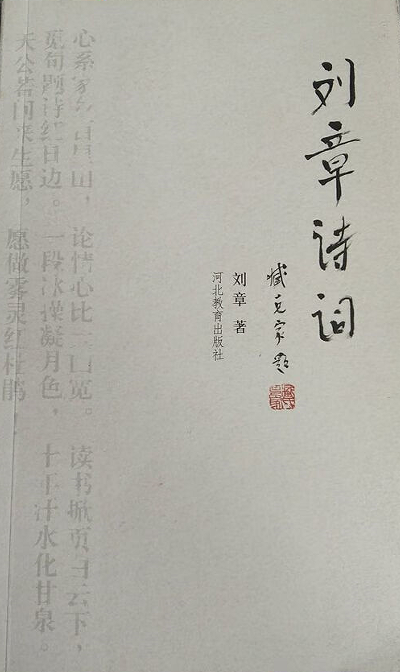 刘章诗词
臧克家题
刘章 著
河北教育出版社
心系家乡百里山，论情心比山宽。读书掀页白云下，
觅句题诗红日边。一段冰操凝月色，十年汗水化甘泉。
天公若问来生愿，愿做雾灵红杜鹃